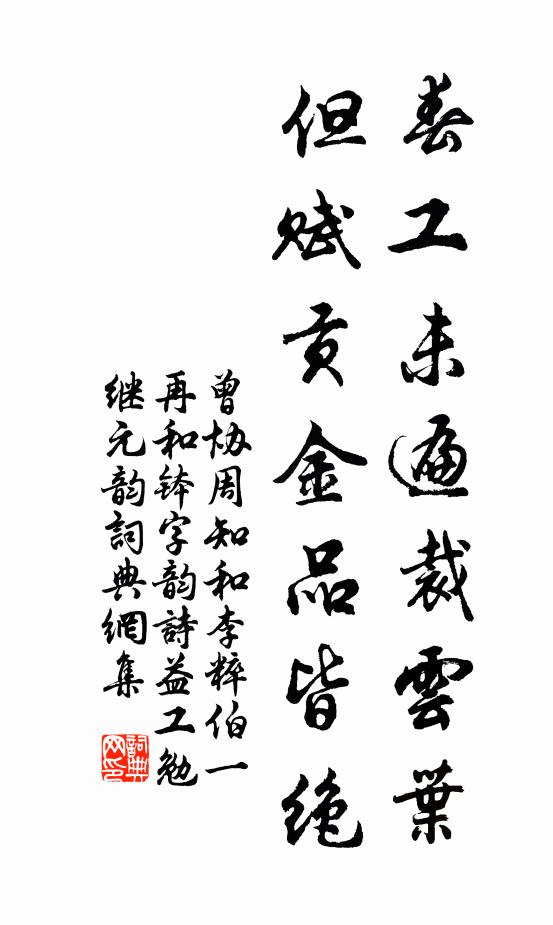 春工未遍裁雲葉
但賦貢金品皆絶
曾协周知和李粹伯一
再和钵字韵詩益工勉
继元韵詞典網集
詞典網印